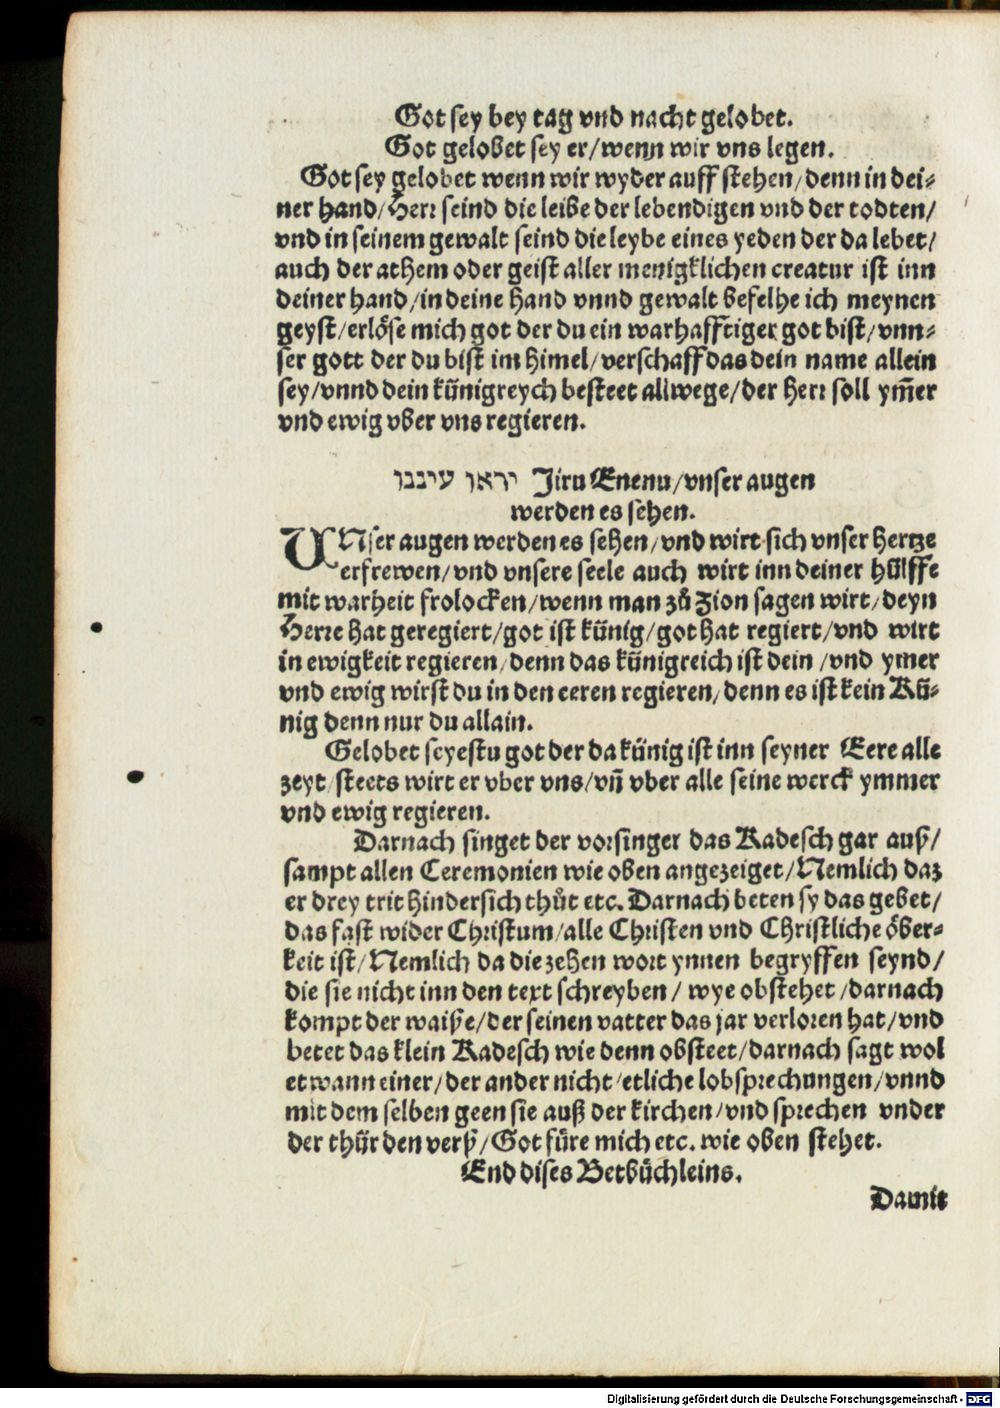 Got sey bey tag vnd nacht gelobet.
Got gelobet sey er/wenn wir vns legen.
Got sey gelobet wenn wir wyder auff stehen/denn in dei⸗
ner hand/Herr seind die leibe der lebendigen vnd der todten/
vnd in seinem gewalt seind die leybe eines yeden der da lebet/
auch der athem oder geist aller menigklichen creatur ist inn
deiner hand/in deine hand vnnd gewalt befelhe ich meynen
geyst/erlöse mich got der du ein warhafftiger got bist/vnn⸗
ser gott der du bist im himel/verschaff das dein name allein
sey/vnnd dein künigreych besteet allwege/der herr soll ym̄er
vnd ewig vber vns regieren.
יראו עיננו Jiru Enenu/vnser augen
werden es sehen.
VNser augen werden es sehen/vnd wirt sich vnser hertze
erfrewen/vnd vnsere seele auch wirt inn deiner hülffe
mit warheit frolocken/wenn man zů Zion sagen wirt/deyn
Herre hat geregiert/got ist künig/got hat regiert/vnd wirt
in ewigkeit regieren/denn das künigreich ist dein/vnd ymer
vnd ewig wirst du in den eeren regieren/denn es ist kein Kü⸗
nig denn nur du allain.
Gelobet seyestu got der da künig ist inn seyner Eere alle
zeyt/steets wirt er vber vns/vn̄ vber alle seine werck ymmer
vnd ewig regieren.
Darnach singet der vorsinger das Kadesch gar auß/
sampt allen Ceremonien wie oben angezeiget/Nemlich daz
er drey trit hindersich thůt etc. Darnach beten sy das gebet/
das fast wider Christum/alle Christen vnd Christliche öber⸗
keit ist/Nemlich da die zehen wort ynnen begryffen seynd/
die sie nicht inn den text schreyben/wye obstehet/darnach
kompt der waiße/der seinen vatter das jar verloren hat/vnd
betet das klein Kadesch wie denn obsteet/darnach sagt wol
etwann einer/der ander nicht/etliche lobsprechungen/vnnd
mit dem selben geen sie auß der kirchen/vnd sprechen vnder
der thür den verß/Got füre mich etc. wie oben stehet.
End dises Betbüchleins.
Damit
Digitalisierung gefördert durch die Deutsche Forschungsgemeinschaft - DFG